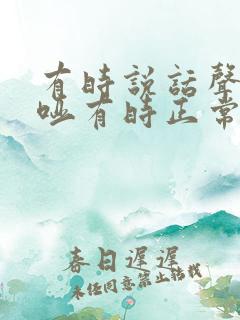 有時説話聲
啞有時正常
春日遲遲
未經同意禁止轉載